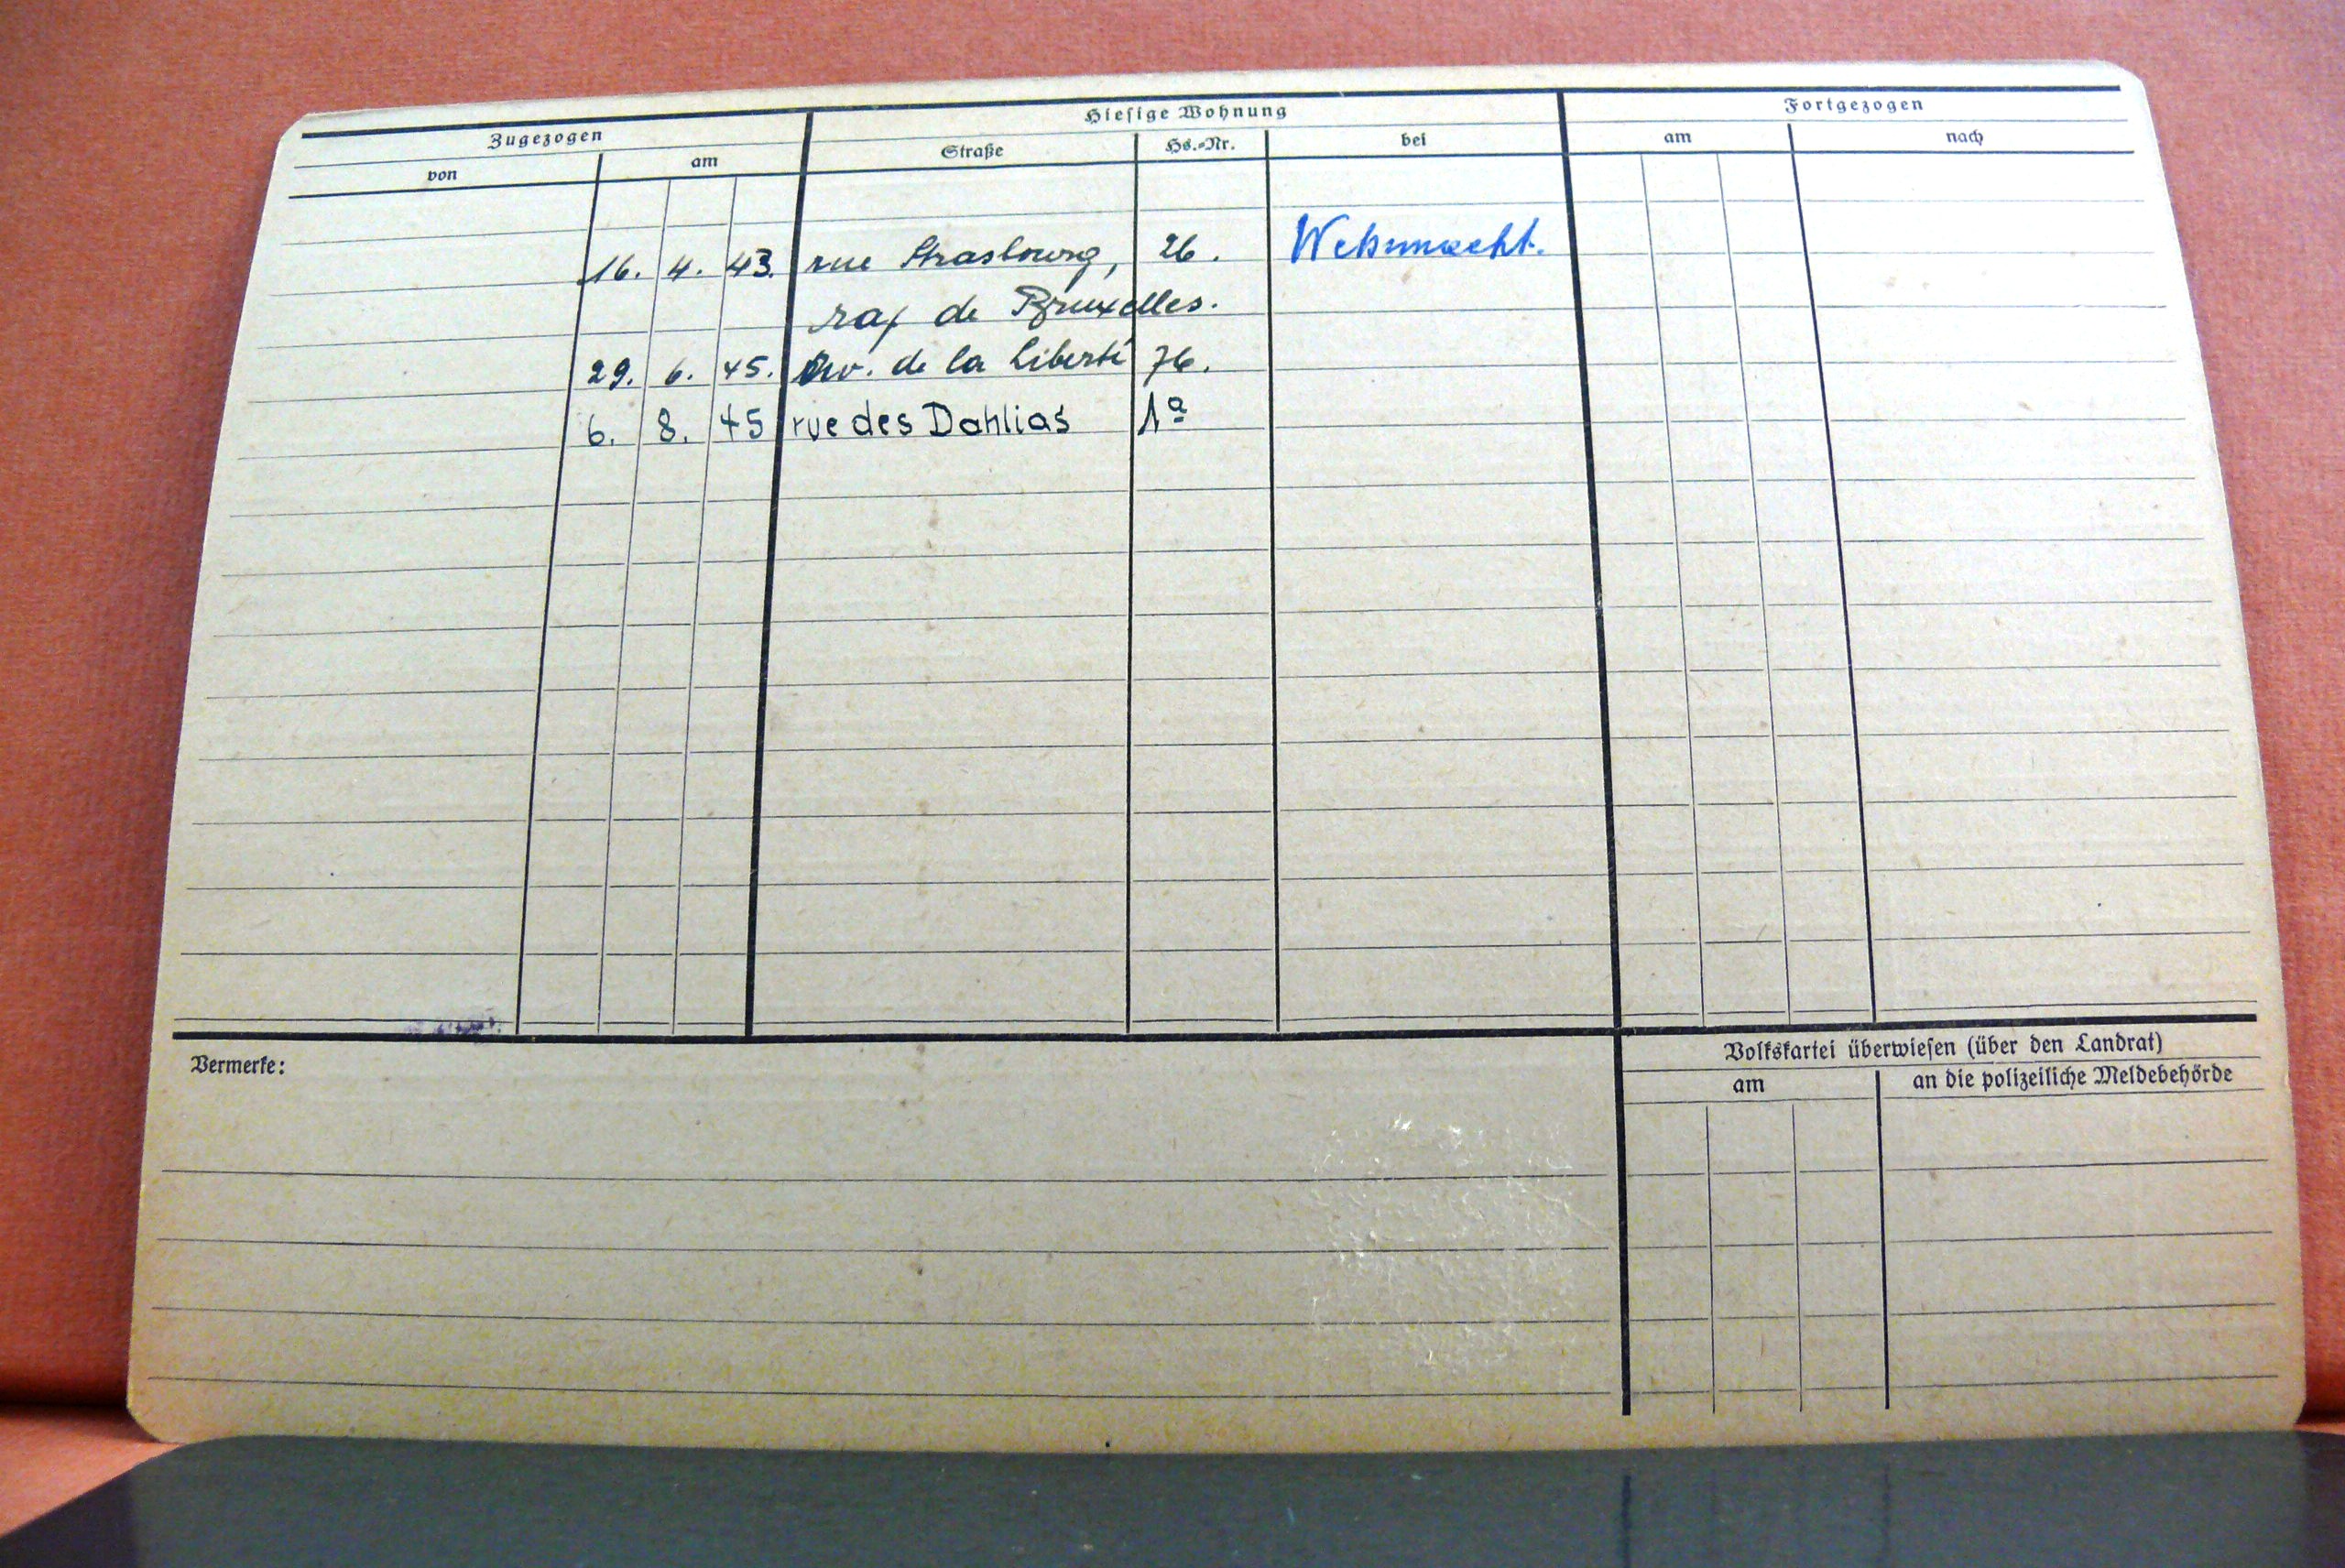 Zugezogen Hiesige Wohnung Fortgezogen
von am Straße Hs.-Nr. bei am nach
16. 4. 43. rue Strasbourg, 26. Wehrmacht.
rap de Bruxelles.
29. 6. 45. Av. de la Liberté 76.
6. 8. 45 rue des Dahlias 1a
Vermerke:
Volkskartei überwiesen (über den Landrat)
am an die polizeiliche Meldebehörde